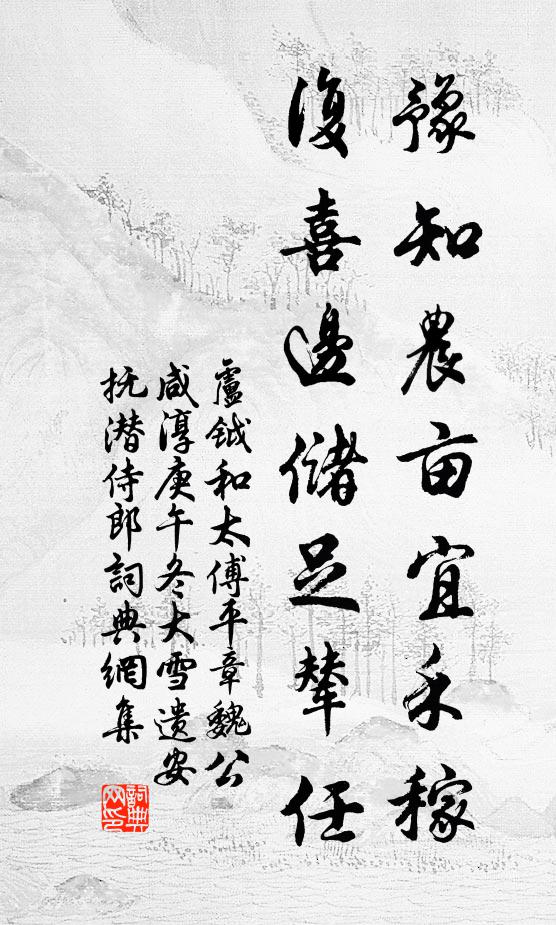 豫知農亩宜禾稼
復喜邊儲足輦任
盧鉞和太傅平章魏公
咸淳庚午冬大雪遗安
抚潜侍郎詞典網集
詞典网印